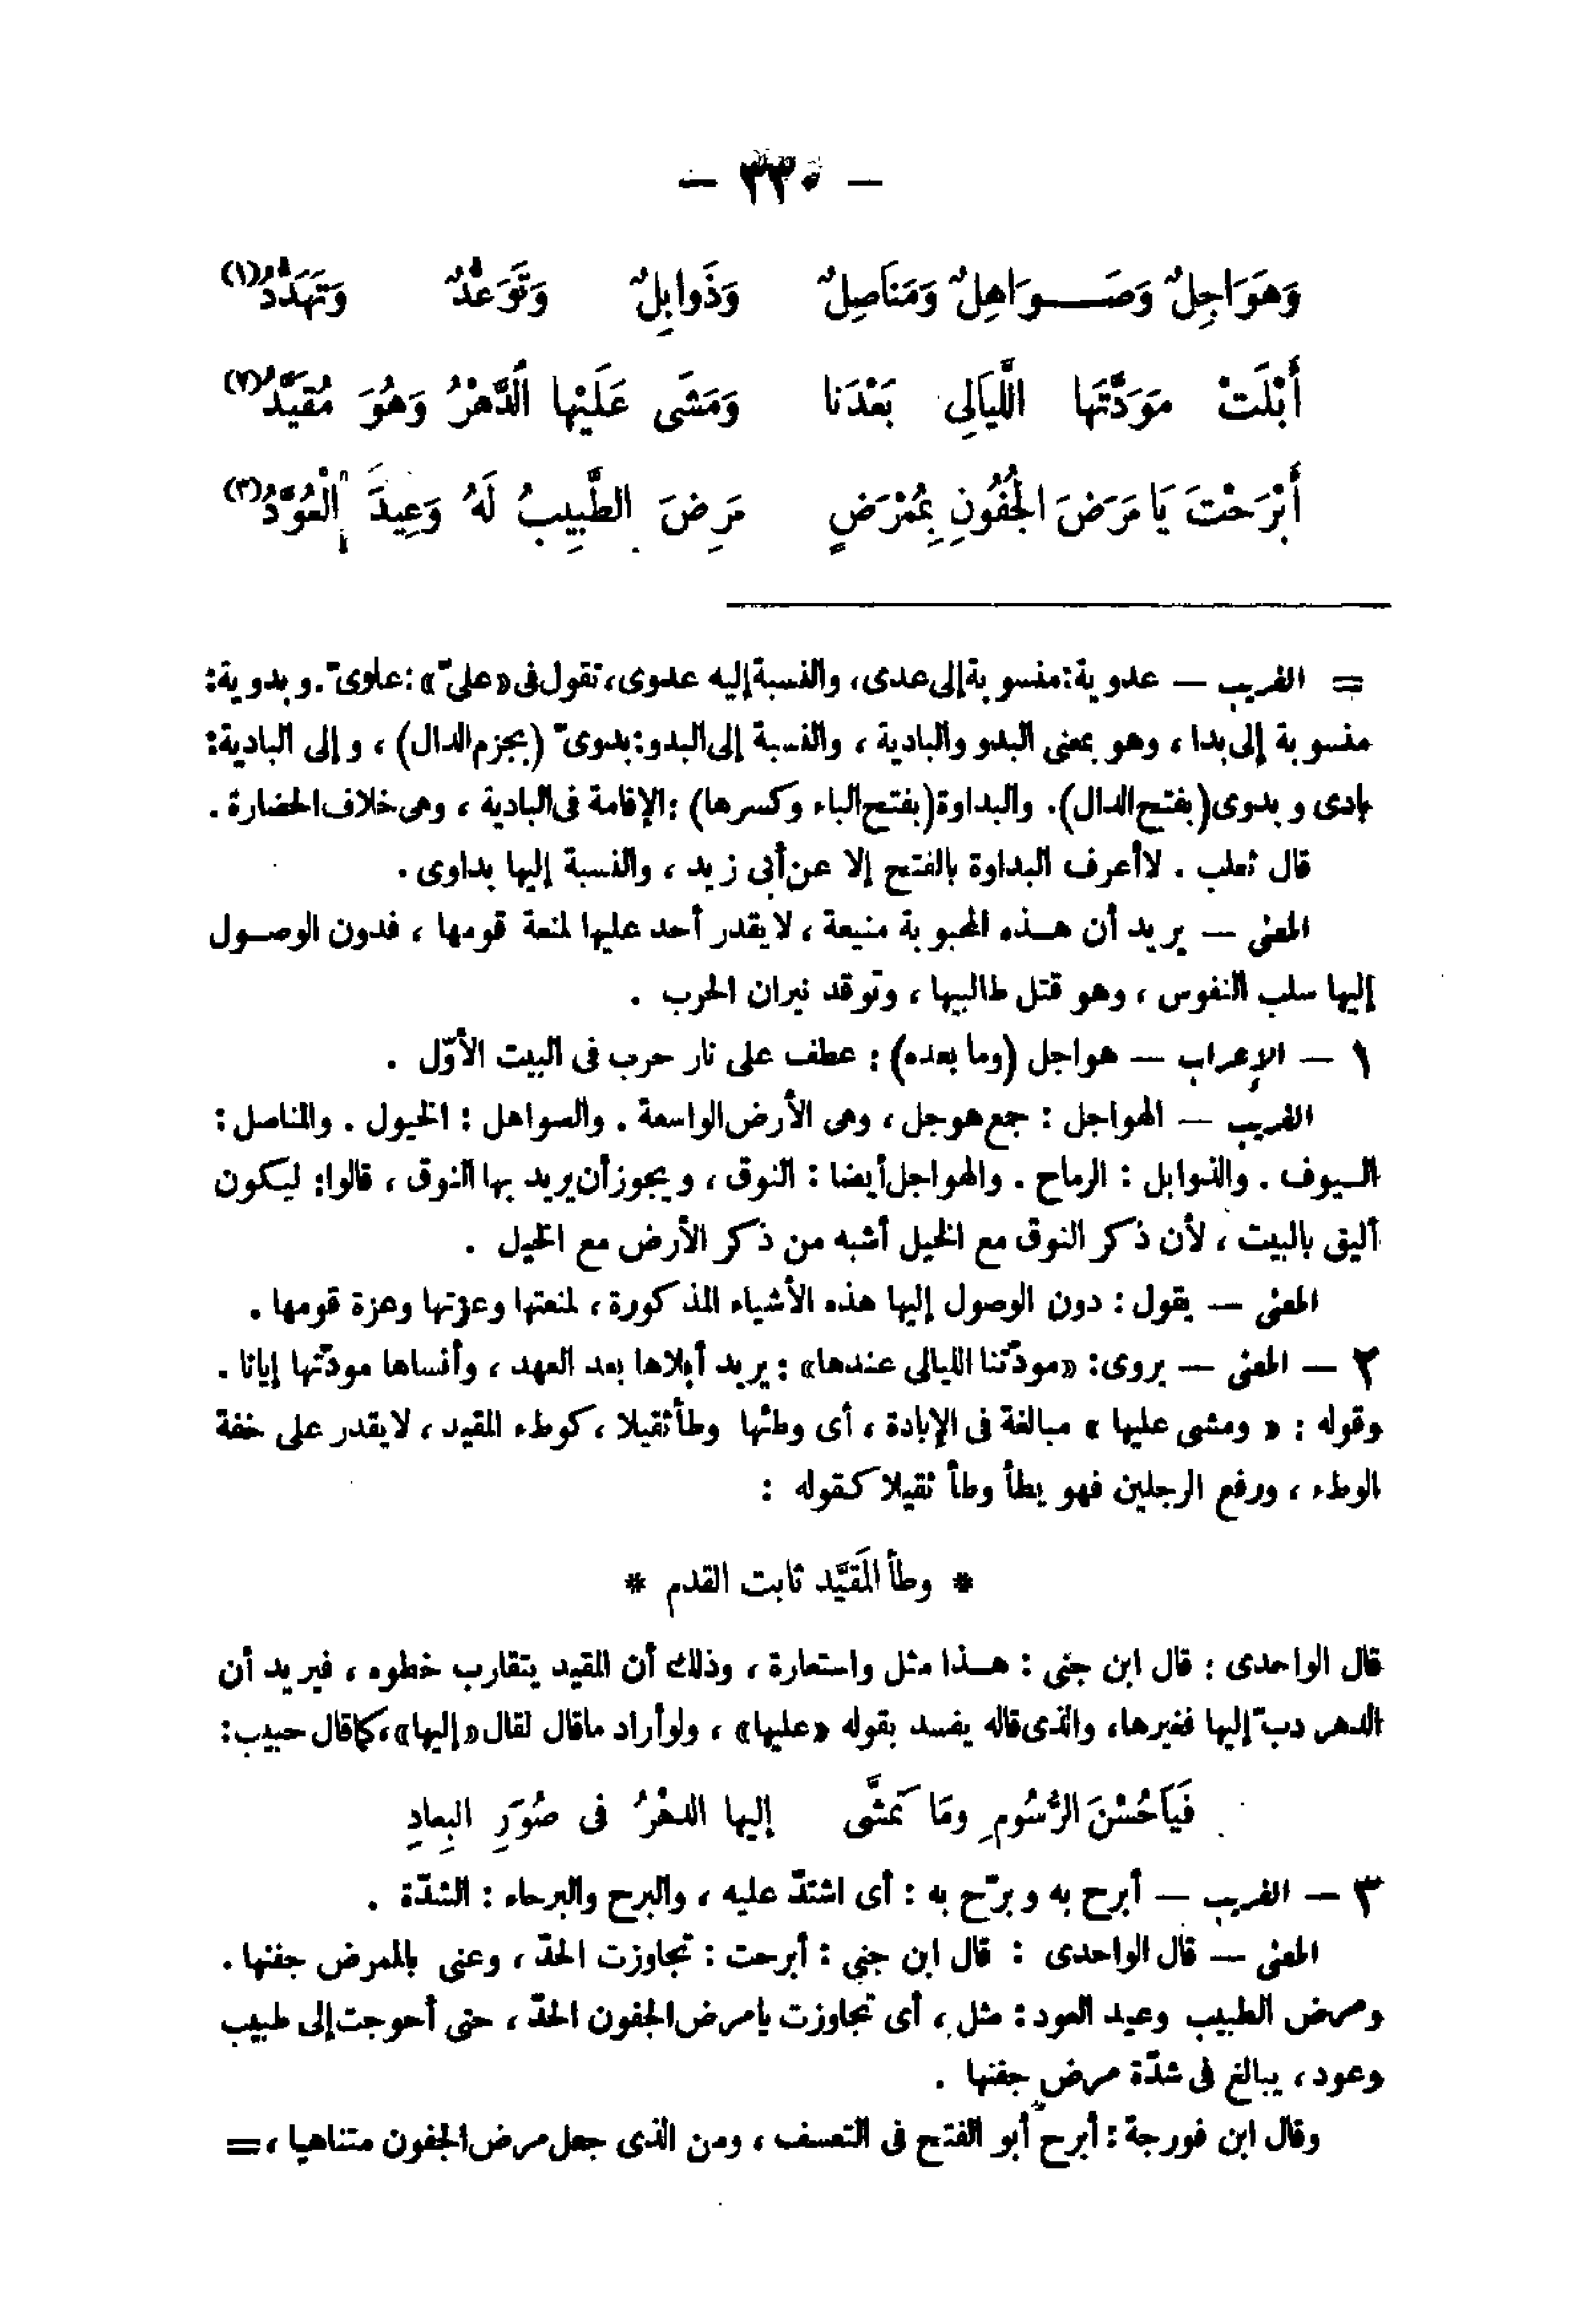 — ٣٣٠ —
وَهَوَاجِلٌ وَصَـــوَاهِلٌ وَمَنَاصِلٌ وَذَوابِلٌ وَتَوَعُّدٌ وَتَهَدُّدُ(١)
أَبْلَتْ مَوَدَّتَهَا اللَّيَالِى بَعْدَنا وَمَشَى عَلَيْها الَّدهْرُ وَهُوَ مُقَيَّدُ(٢)
أَبْرَحْتَ يَا مَرَضَ الجُفُونِ بِمُمْرَضٍ مَرِضَ الطَّبِيبُ لَهُ وَعِيدَ الْعُوَّدُ(٣)
= الغريب — عدوية: منسوبة إلى عدى، والنسبة إليه عدوى، تقول فى «علىّ»: علوىّ. وبدوية:
منسوبة إلى بدا ، وهو بمعنى البدو والبادية ، والنسبة إلى البدو: بدوىّ (بجزم الدال) ، وإلى البادية:
بادى وبدوى (بفتح الدال). والبداوة (بفتح الباء وكسرها) : الإقامة فى البادية ، وهى خلاف الحضارة .
قال ثعلب . لا أعرف البداوة بالفتح إلا عن أبى زيد ، والنسبة إليها بداوى .
المعنى — يريد أن هـذه المحبوبة منيعة ، لا يقدر أحد عليها لمنعة قومها ، فدون الوصـول
إليها سلب النفوس ، وهو قتل طالبيها ، وتوقد نيران الحرب .
١ — الإعراب — هواجل (وما بعده) : عطف على نار حرب فى البيت الأوّل .
الغريب — الهواجل : جمع هوجل ، وهى الأرض الواسعة . والصواهل : الخيول . والمناصل :
السيوف . والذوابل : الرماح . والهواجل أيضا : النوق ، ويجوز أن يريد بها النوق ، قالوا: ليكون
أليق بالبيت ، لأن ذكر النوق مع الخيل أشبه من ذكر الأرض مع الخيل .
المعنى — يقول : دون الوصول إليها هذه الأشياء المذكورة ، لمنعتها وعزتها وعزة قومها .
٢ — المعنى — يروى: «مودّتنا الليالى عندها» : يريد أبلاها بعد العهد ، وأنساها مودّتها إيانا .
وقوله : « ومشى عليها » مبالغة فى الإبادة ، أى وطئها وطأ ثقيلا ، كوطء المقيد ، لا يقدر على خفة
الوطء ، ورفع الرجلين فهو يطأ وطأ ثقيلا كقوله :
* وطأ المَقيَّد ثابت القدم *
قال الواحدى : قال ابن جنى : هـذا مثل واستعارة ، وذلك أن المقيد يتقارب خطوه ، فيريد أن
الدهر دبّ إليها فغيرها، والذى قاله يفسد بقوله «عليها» ، ولو أراد ما قال لقال «إليها»، كما قال حبيب:
فَيَاحُسْنَ الرُّسُومِ ومَا تَمشَّى إليها الدهْرُ فى صُوَرِ البِعادِ
٣ — الغريب — أبرح به وبرّح به : أى اشتدّ عليه ، والبرح والبرحاء : الشدّة .
المعنى — قال الواحدى : قال ابن جنى : أبرحت : تجاوزت الحدّ ، وعنى بالممرض جفنها .
ومرض الطبيب وعيد العود : مثل ، أى تجاوزت يا مرض الجفون الحدّ ، حتى أحوجت إلى طبيب
وعود ، يبالغ فى شدّة مرض جفنها .
وقال ابن فورجة : أبرح أبو الفتح فى التعسف ، ومن الذى جعل مرض الجفون متناهيا ، =